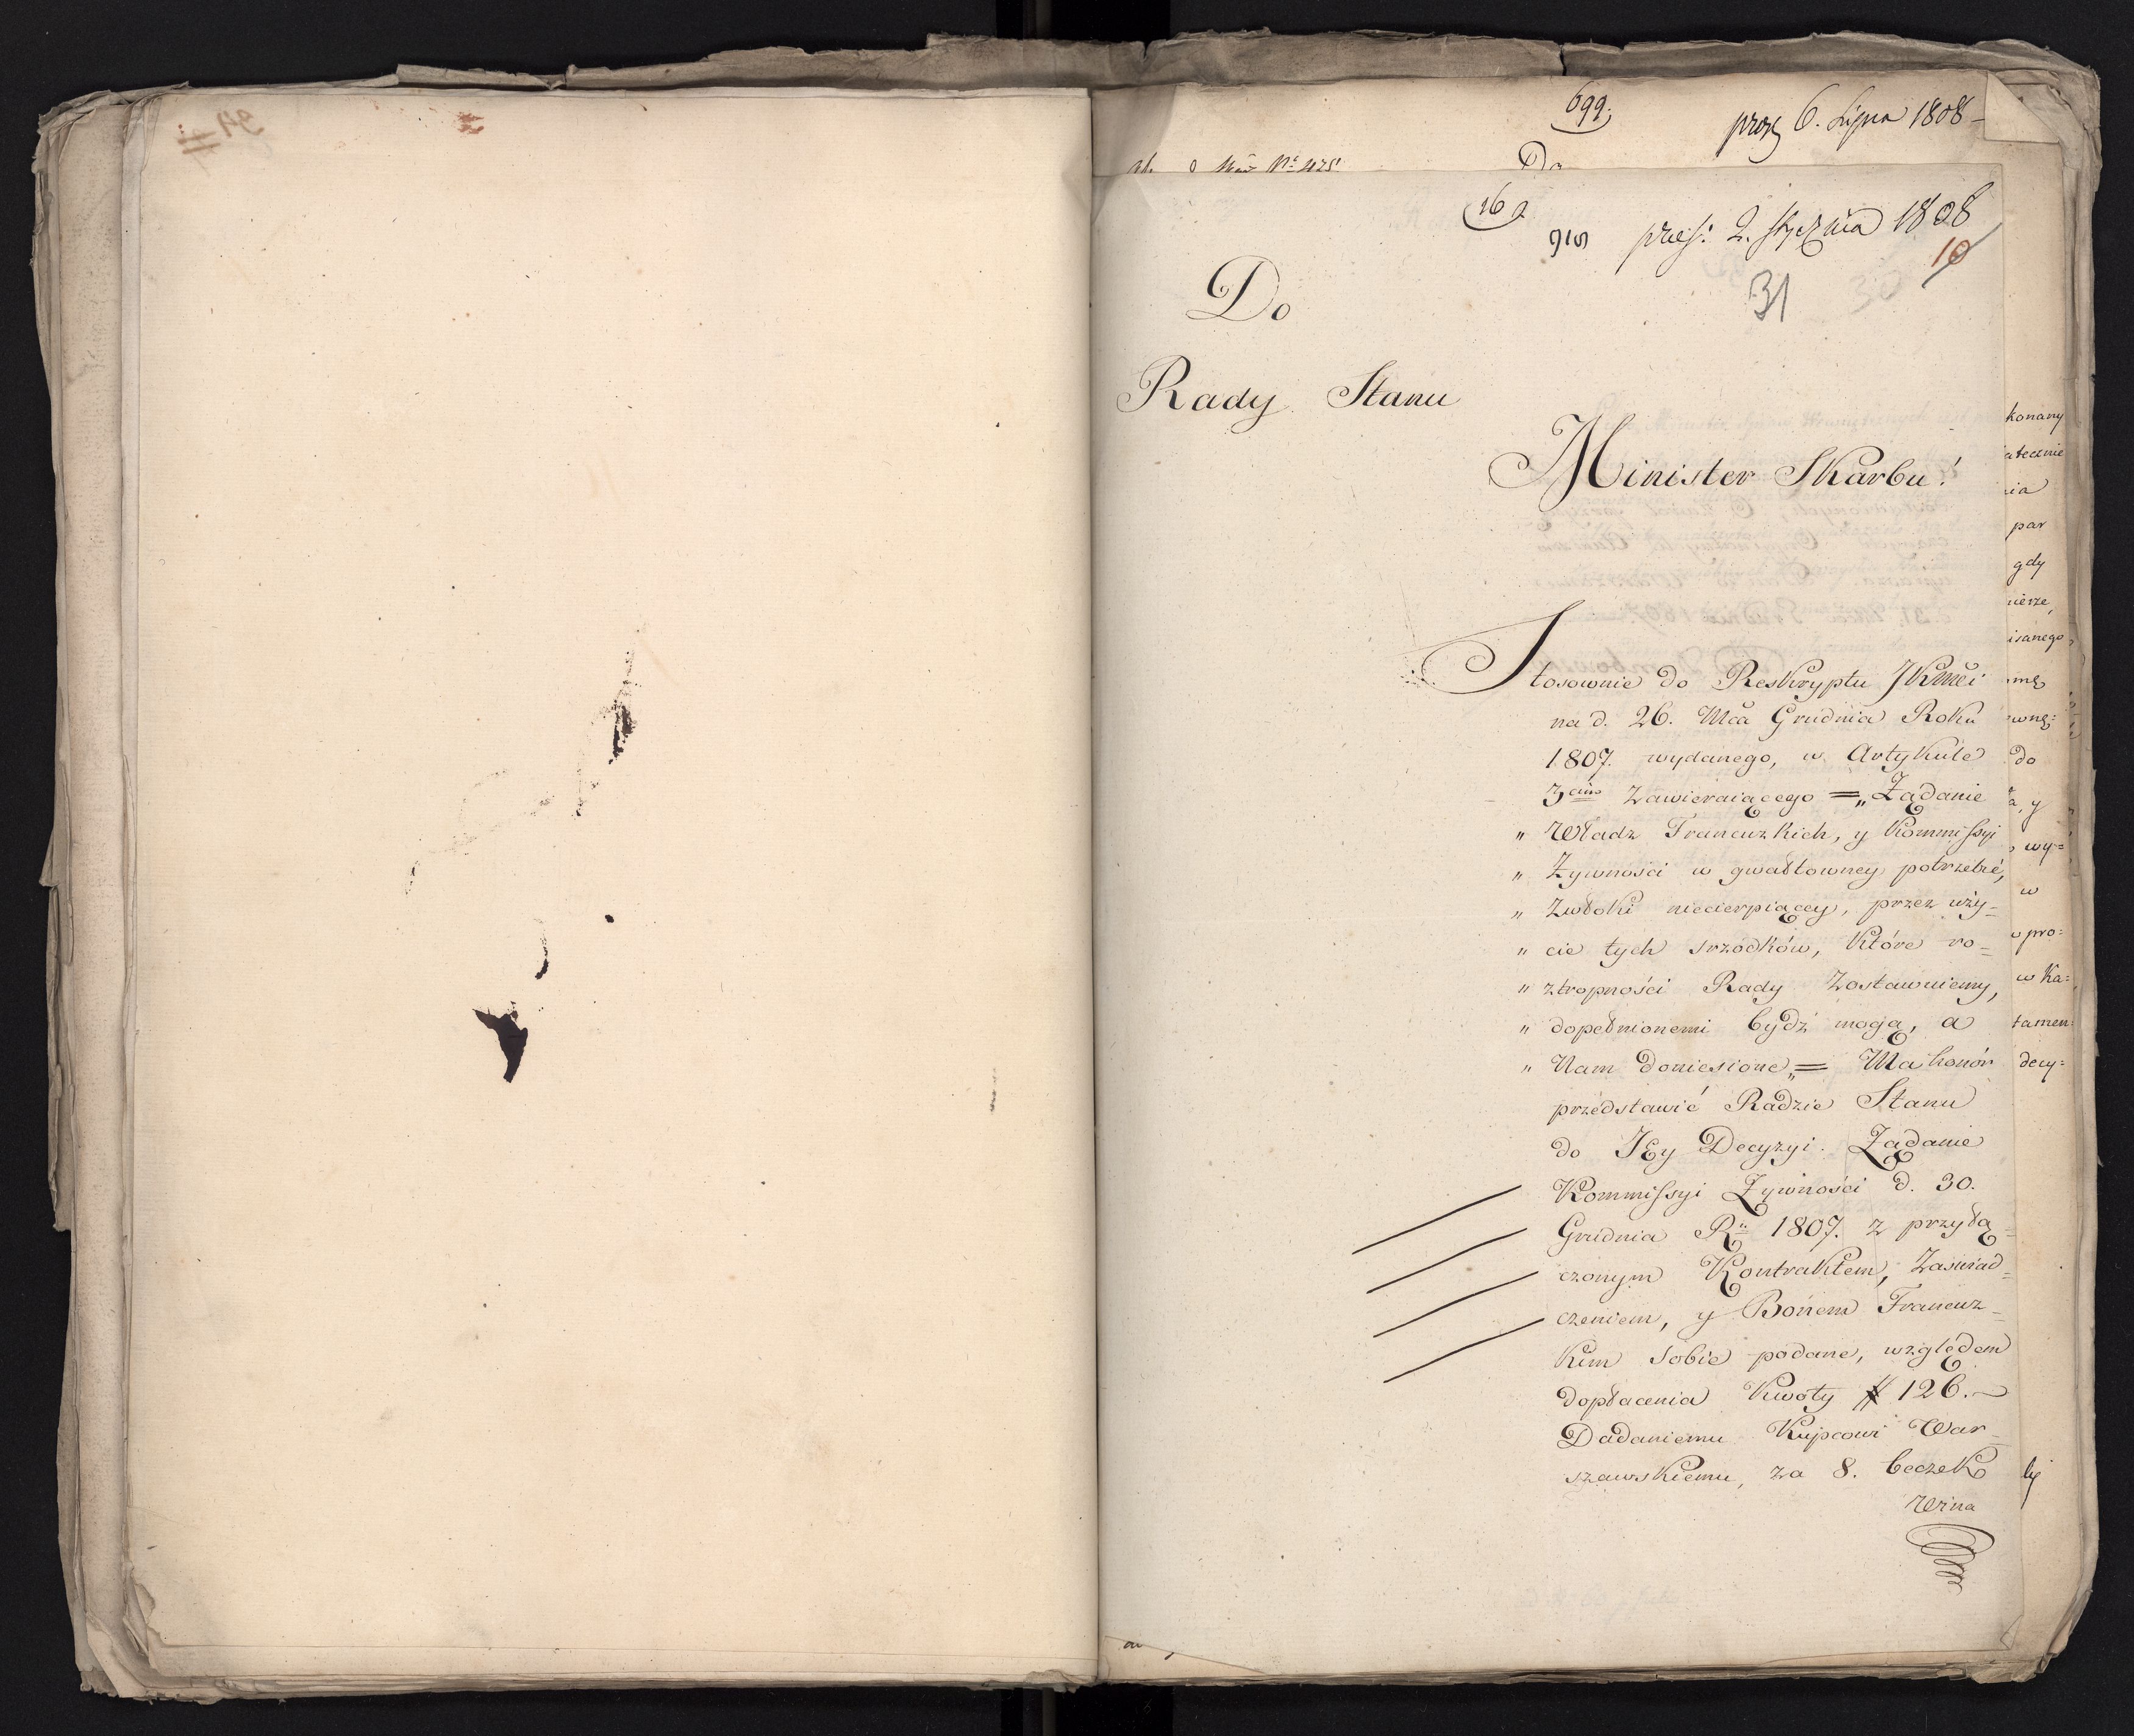 699.
6. Lipca 1808
Do
16
pres: 2. Stycznia 1808
10
31 30
Do
Rady Stanu
Minister Skarbu!
Stosownie do Reskryptu JKMći
na d. 26. Mca Grudnia Roku
1807. wydanego, w Artykule
3cim Zawieraiącego = „Żądanie
„ Władz Francuzkich, y Kommissyi
„ Żywności w gwałtowney potrzebie,
„ Zwłoki niecierpiącey, przez uży=
„ cie tych srzodków, które ro=
„ ztropności Rady Zostawuiemy,
„ dopełnionemi bydź mogą, a
„ Nam doniesione„ = Ma honór
przedstawić Radzie Stanu
do JEy Decyzyi. Żądanie
Kommissyi Żywności d. 30.
Grudnia R. 1807. z przyłą=
czonym Kontraktem, Zaświad=
czeniem, y Bonem Francuz=
kim sobie podane, względem
dopłacenia Kwoty # 126.
Dadaniemu Kupcowi War=
szawskiemu, za 8. beczek
Wina
konany
atecznie
nia
par
gdy
nierze,
isanego
do
y
wy=
w
pro=
w Ka=
tamen=
decy=